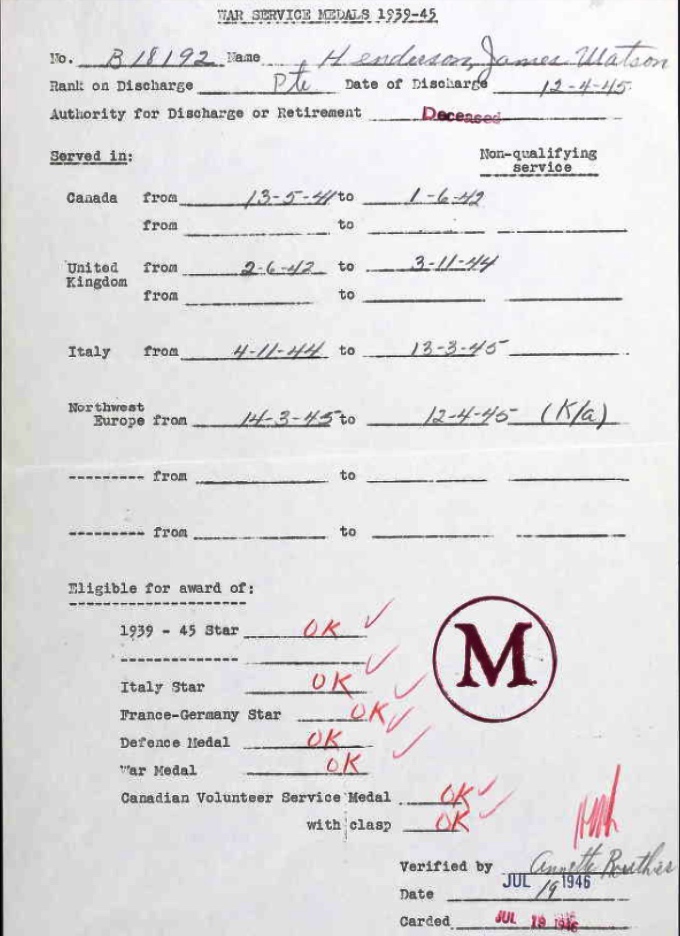 WAR SERVICE MEDALS 1939-45
No. B 18192 Name Henderson, James Watson
Rank on Discharge Pte Date of Discharge 12-4-45
Authority for Discharge or Retirement Deceased
Served in: Non-qualifying
service
Canada from 13-5-41 to 1-6-42
from to
United from 2-6-42 to 3-11-44
Kingdom
from to
Italy from 4-11-44 to 13-3-45
Northwest
Europe from 14-3-45 to 12-4-45 (K/a)
--------- from to
--------- from to
Eligible for award of:
1939 - 45 Star OK
Italy Star OK
France-Germany Star OK
Defence Medal OK
War Medal OK
Canadian Volunteer Service Medal OK
with clasp OK
M
Verified by Annette
Date JUL 19 1946
Carded JUL 19 1946